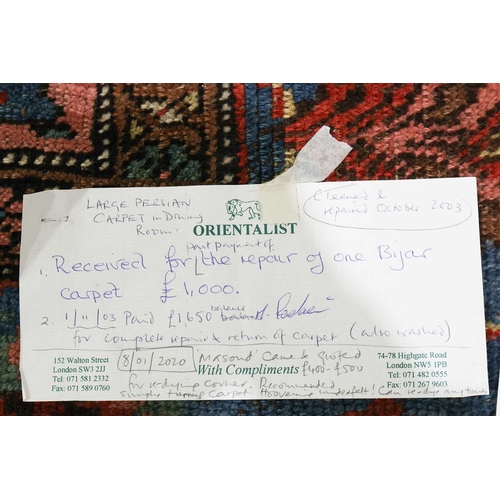 LARGE PERSIAN
CARPET in Dining
Room.
Cleaned &
repaired October 2003
ORIENTALIST
part payment of
1. Received for the repair of one Bijar
carpet £1,000.
2. 1/11/03 Paid £1,650 balance
for complete repair & return of carpet (also washed)
152 Walton Street
London SW3 2JJ
Tel: 071 581 2332
Fax: 071 589 0760
8/01/2020 Masoud Came & quoted
With Compliments £400-£500
74-78 Highgate Road
London NW5 1PB
Tel: 071 482 0555
Fax: 071 267 9603
for redying corner. Recommended
simply turning Carpet. Hoovering underfelt! Can redye anytime